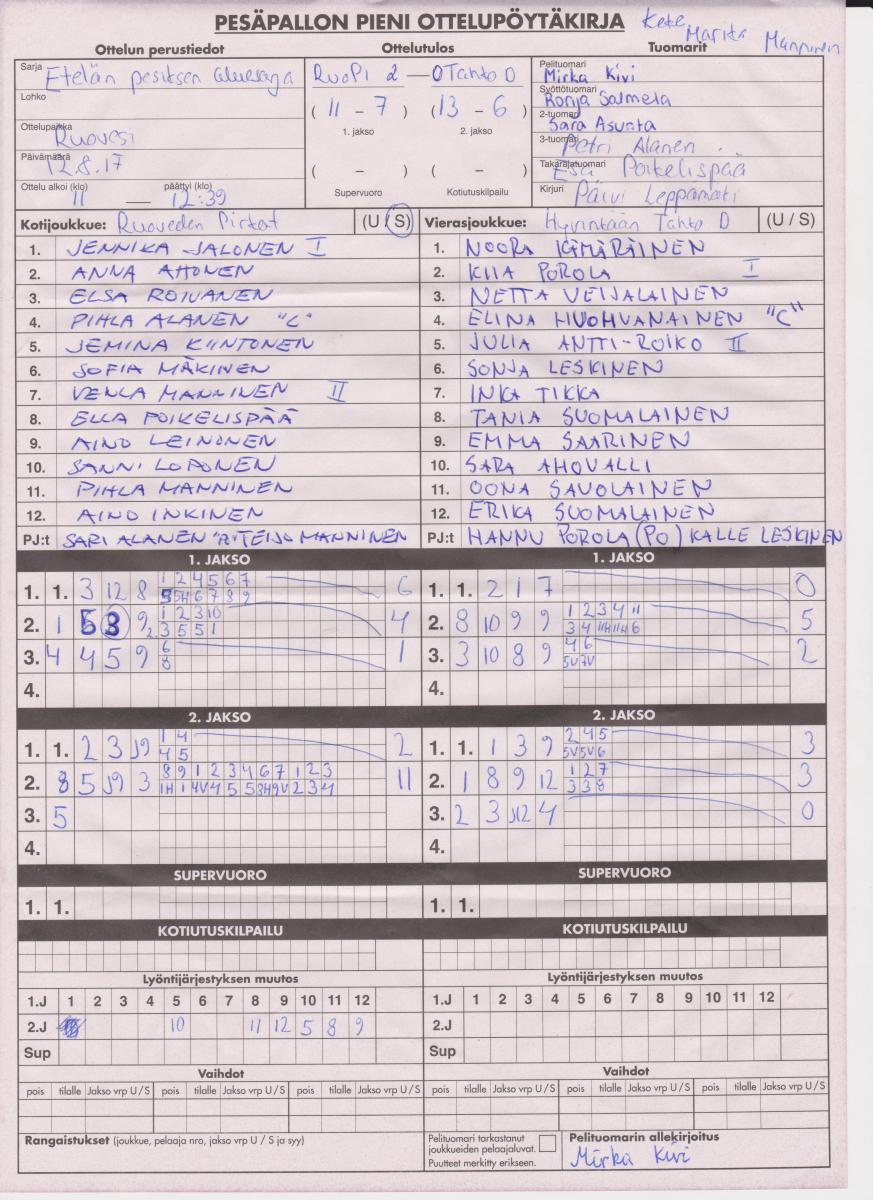 PESÄPALLON PIENI OTTELUPÖYTÄKIRJA
Marita Manninen
Ottelun perustiedot Ottelutulos Tuomarit
Sarja Etelän pesitsen aluesarja
RuoPi 2 — 0 Tahto D
Pelituomari Mirka Kivi
Syöttötuomari Ronja Salmela
Lohko
( 11 - 7 ) ( 13 - 6 )
1. jakso 2. jakso
2-tuomari Sara Asunta
Ottelupaikka Ruovesi
3-tuomari Petri Alanen
Päivämäärä 12.8.17
Takarajatuomari Esa Poikelispää
( - ) ( - )
Ottelu alkoi (klo) päättyi (klo)
11 — 12:39
Supervuoro Kotiutuskilpailu
Kirjuri Päivi Leppämäki
Kotijoukkue: Ruoveden Pirkat (U / S) Vierasjoukkue: Hyvinkään Tahto D (U / S)
1. JENNIKA JALONEN I 1. NOORA KÄMÄRÄINEN
2. ANNA AHONEN 2. KIIA POROLA I
3. ELSA ROIVANEN 3. NETTA VEIJALAINEN
4. PIHLA ALANEN "C" 4. ELINA HUOHVANAINEN "C"
5. JEMINA KIINTONEN 5. JULIA ANTTI-ROIKO II
6. SOFIA MÄKINEN 6. SONJA LESKINEN
7. VENLA MANNINEN II 7. INKA TIKKA
8. ELLA POIKELISPÄÄ 8. TANIA SUOMALAINEN
9. AINO LEINONEN 9. EMMA SAARINEN
10. SANNI LOPONEN 10. SARA AHOVALLI
11. PIHLA MANNINEN 11. OONA SAVOLAINEN
12. AINO INKINEN 12. ERIKA SUOMALAINEN
PJ:t SARI ALANEN REIJO MANNINEN PJ:t HANNU POROLA (PO) KALLE LESKINEN
1. JAKSO 1. JAKSO
1. 1. 3 12 8 1 2 4 5 6 7 6 1. 1. 2 1 7 0
5 5H 6 7 8 9
2. 1 5 3 9 1 2 3 10 4 2. 8 10 9 9 1 2 3 4 11 5
2. 3 5 5 1 3 4 11H 11H 6
3. 4 4 5 9 6 1 3. 3 10 8 9 4 6 2
8 5V 7V
4. 4.
2. JAKSO 2. JAKSO
1. 1. 2 3 J9 1 4 2 1. 1. 1 3 9 2 4 5 3
4 5 5V 5V 6
2. 8 5 J9 3 8 9 1 2 3 4 6 7 1 2 3 11 2. 1 8 9 12 1 2 7 3
1H 1 4V 4 5 5 3H 9V 2 3 4 3 3 8
3. 5 3. 2 3 J12 4 0
4. 4.
SUPERVUORO SUPERVUORO
1. 1. 1. 1.
KOTIUTUSKILPAILU KOTIUTUSKILPAILU
Lyöntijärjestyksen muutos Lyöntijärjestyksen muutos
1.J 1 2 3 4 5 6 7 8 9 10 11 12 1.J 1 2 3 4 5 6 7 8 9 10 11 12
2.J 10 11 12 5 8 9 2.J
Sup Sup
Vaihdot Vaihdot
pois tilalle Jakso vrp U / S pois tilalle Jakso vrp U / S pois tilalle Jakso vrp U / S pois tilalle Jakso vrp U / S pois tilalle Jakso vrp U / S pois tilalle Jakso vrp U / S
Rangaistukset (joukkue, pelaaja nro, jakso vrp U / S ja syy)
Pelituomari tarkastanut
joukkueiden pelaajaluvat.
Puutteet merkitty erikseen.
Pelituomarin allekirjoitus
Mirka Kivi